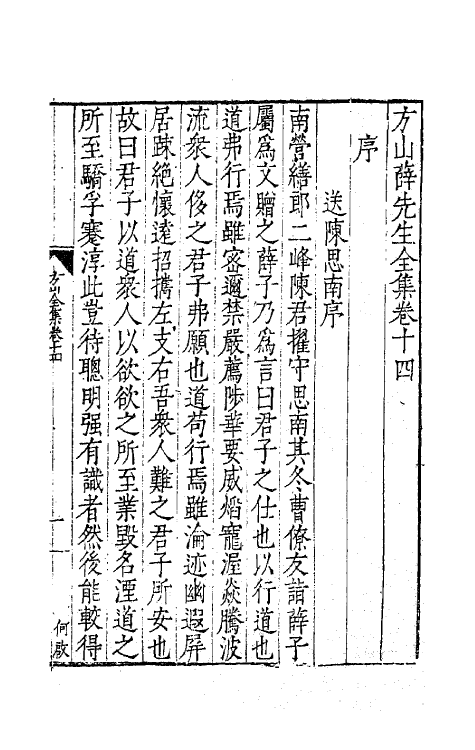 方山薛先生全集卷十四
序
送陳思南序
南營繕郎二峰陳君擢守思南其冬曹僚友請薛子
屬爲文贈之薛子乃爲言曰君子之仕也以行道也
道弗行焉雖密邇禁嚴薦陟華要威熖寵渥焱騰波
流衆人侈之君子弗願也道苟行焉雖淪迹幽遐屏
居踈絶懷遠招擕左支右吾衆人難之君子所安也
故曰君子以道衆人以欲欲之所至業毀名湮道之
所至驕孚蹇淳此豈待聰明强有識者然後能較得
方山全集卷十四
一
何敭